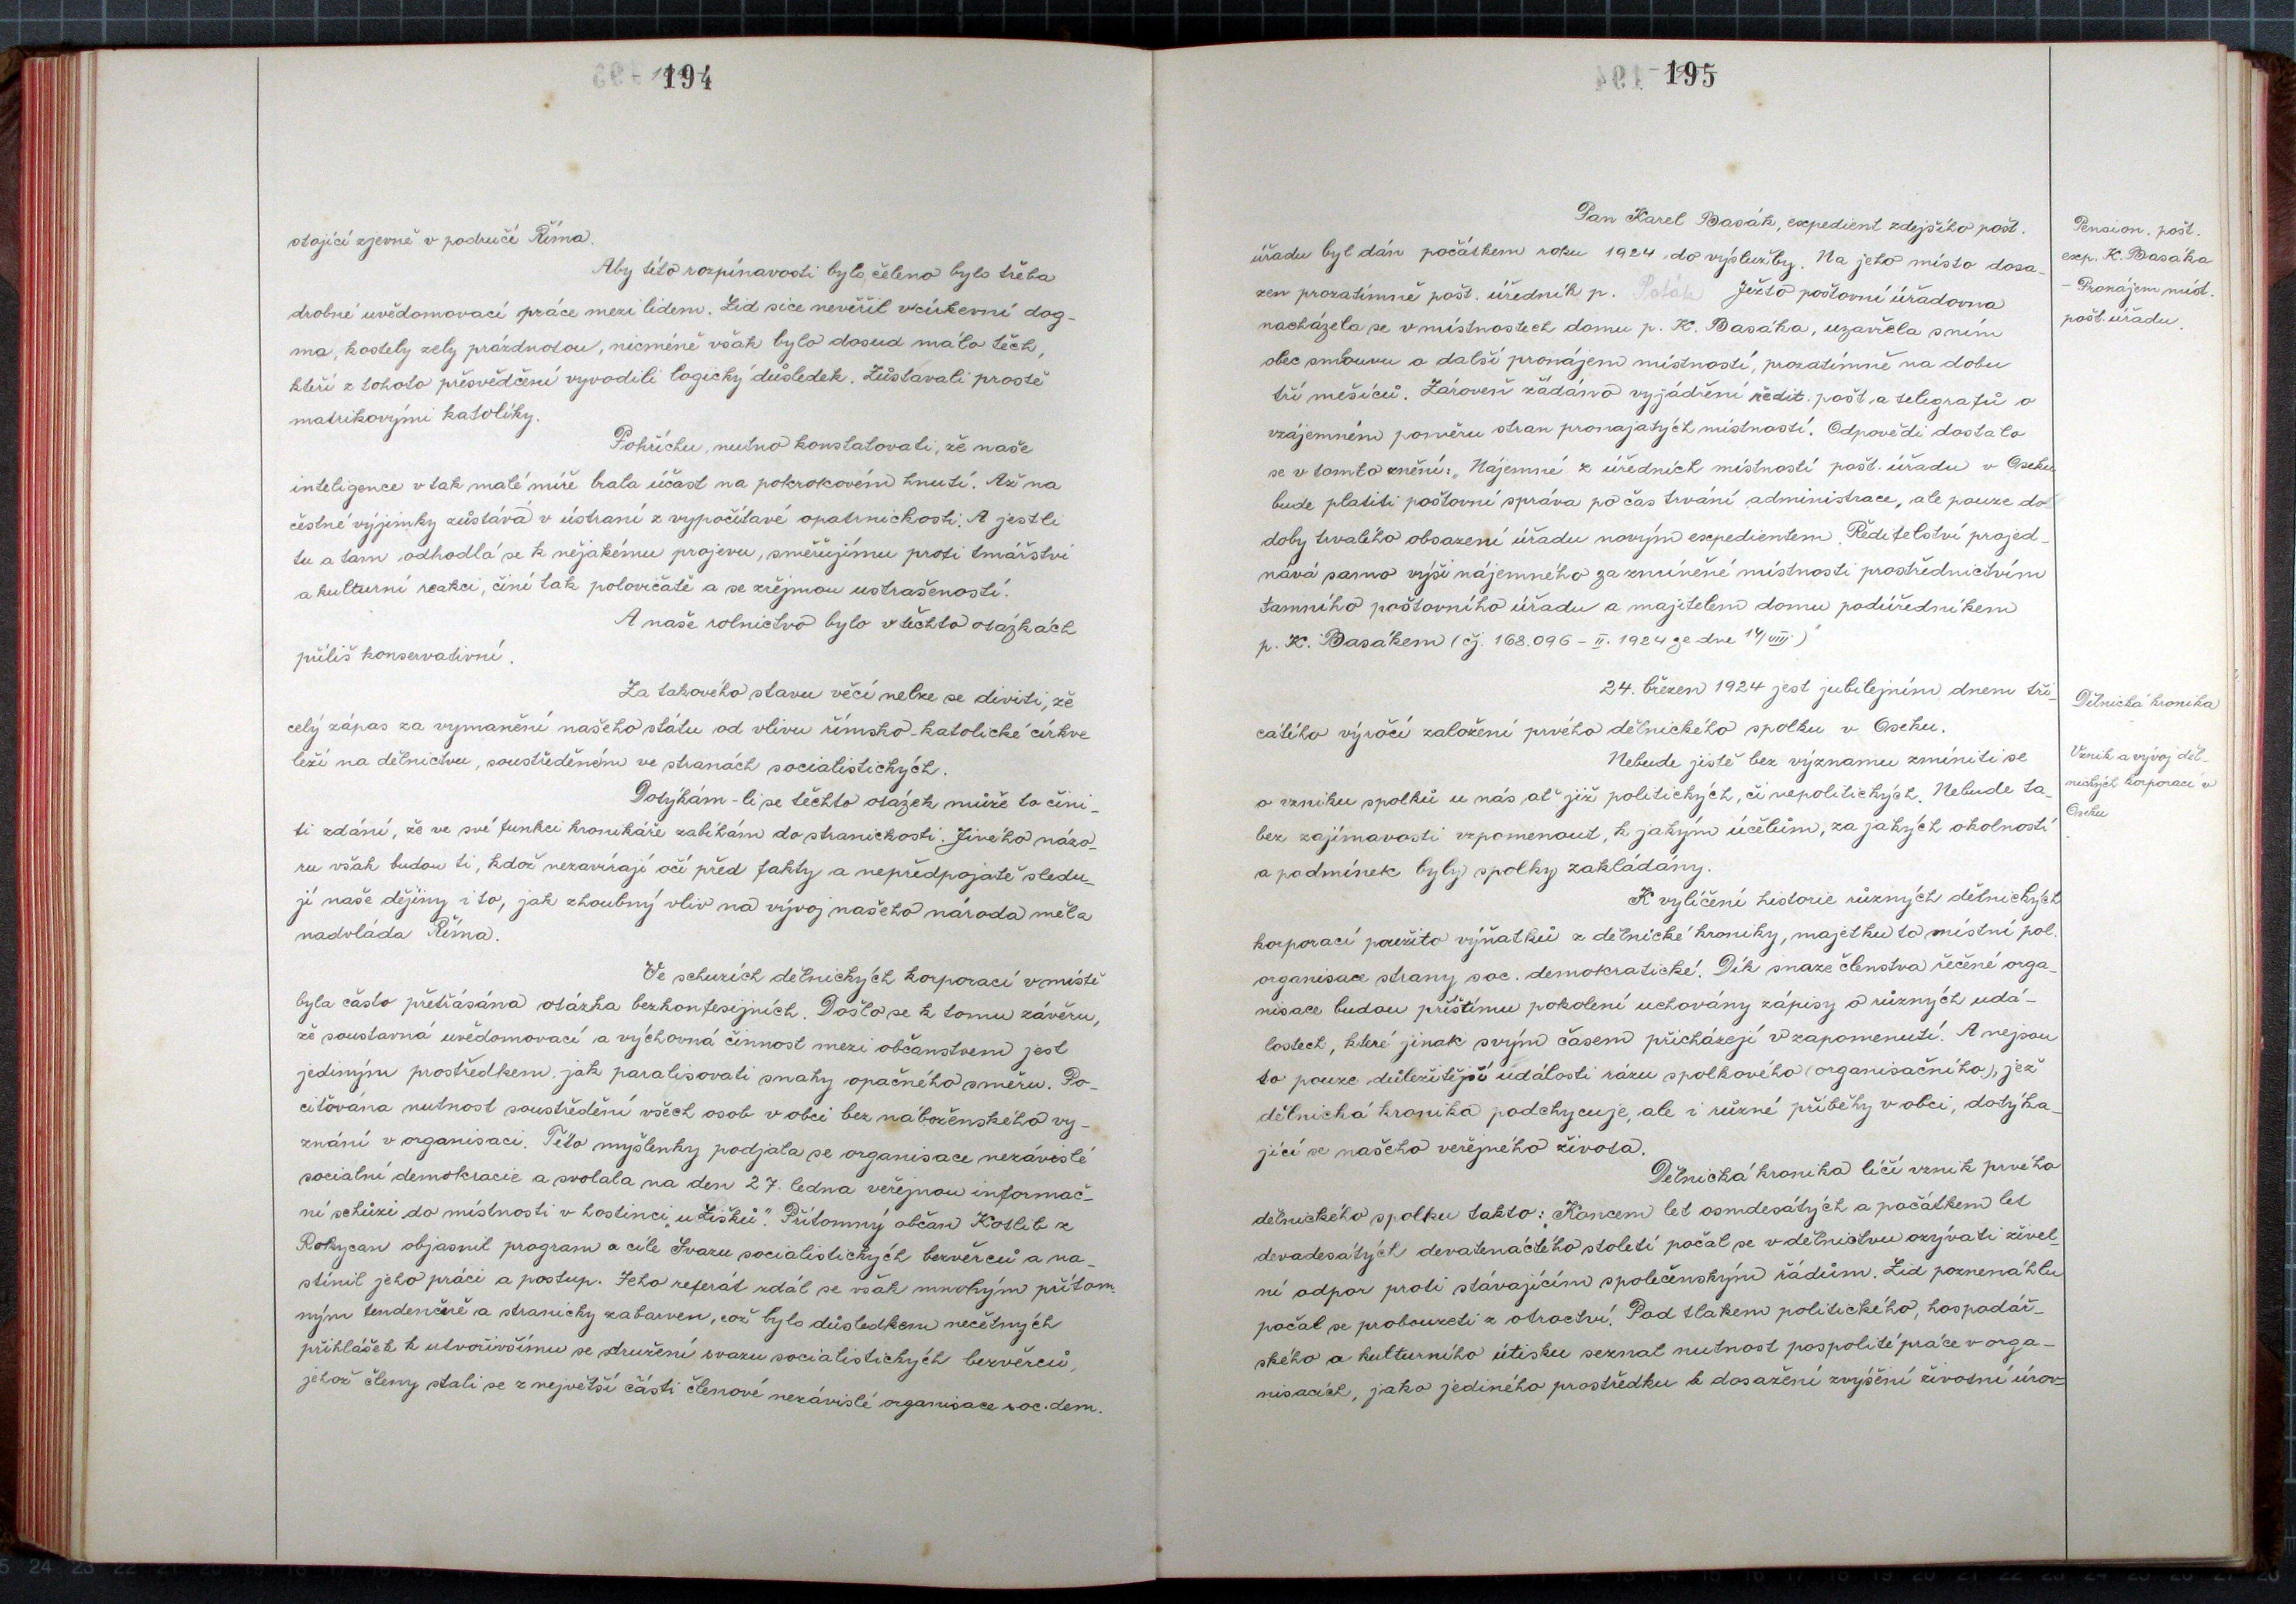 194
stojící zjevně v područí Říma.
Aby této rozpínavosti bylo čeleno bylo třeba
drobné uvědomovací práce mezi lidem. Lid sice nevěřil v církevní dog-
ma, kostely zely prázdnotou, nicméně však bylo dosud málo těch,
kteří z tohoto přesvědčení vyvodili logický důsledek. Zůstavali prostě
matrikovými katolíky.
Pohříchu, nutno konstatovati, že naše
inteligence v tak malé míře brala účast na pokrokovém hnutí. Až na
čestné výjimky zůstává v ústraní z vypočítavé opatrnickosti. A jestli
tu a tam odhodlá se k nějakému projevu, směřujímu proti tmářství
a kulturní reakci, činí tak polovičatě a se zřejmou ustrašeností.
A naše rolnictvo bylo v těchto otázkách
příliš konservativní.
Za takového stavu věcí nelze se diviti, že
celý zápas za vymanění našeho státu od vlivu římsko-katolické církve
leží na dělnictvu, soustředěném ve stranách socialistických.
Dotýkám-li se těchto otázek může to čini-
ti zdání, že ve své funkci kronikáře zabíhám do stranickosti. Jiného názo-
ru však budou ti, kdož nezavírají oči před fakty a nepředpojatě sledu-
jí naše dějiny i to, jak zhoubný vliv na vývoj našeho národa měla
nadvláda Říma.
Ve schuzích dělnických korporací v místě
byla často přetřásána otázka bezkonfesijních. Došlo se k tomu závěru,
že soustavná uvědomovací a výchovná činnost mezi občanstvem jest
jediným prostředkem jak paralisovati snahy opačného směru. Po-
citována nutnost soustředění všech osob v obci bez náboženského vy-
znání v organisaci. Této myšlenky podjala se organisace nezávislé
socialní demokracie a svolala na den 27. ledna veřejnou informač-
ní schůzi do místnosti v hostinci „u Lišků". Přítomný občan Kotlib z
Rokycan objasnil program a cíle Svazu socialistických bezvěrců a na-
stínil jeho práci a postup. Jeho referát zdál se však mnohým přítom-
ným tendenčně a stranicky zabarven, což bylo důsledkem nečetných
přihlášek k utvořivšímu se sdružení svazu socialistických bezvěrců,
jehož členy stali se z největší části členové nezávislé organisace soc. dem.
195
Pan Karel Basák, expedient zdejšího pošt.
úřadu byl dán počátkem roku 1924 do výslužby. Na jeho místo dosa-
zen prozatímně pošt. úředník p. Ježto poštovní úřadovna
nacházela se v místnostech domu p. K. Basáka, uzavřela s ním
obec smlouvu o další pronájem místností, prozatímně na dobu
tří měsíců. Zároveň žádáno vyjádření ředit. pošt a telegrafů o
vzájemném poměru stran pronajatých místností. Odpovědi dostalo
se v tomto znění: „Nájemné z úředních místností pošt. úřadu v Oseku
bude platiti poštovní správa po čas trvání administrace, ale pouze do
doby trvalého obsazení úřadu novým expedientem. Ředitelství projed-
nává samo výši nájemného za zmíněné místnosti prostřednictvím
tamního poštovního úřadu a majitelem domu podúředníkem
p. K. Basákem (čj. 168.096 – II. 1924 ze dne 14/VIII.)"
24. březen 1924 jest jubilejním dnem tři-
cátého výročí založení prvého dělnického spolku v Oseku.
Nebude jistě bez významu zmíniti se
o vzniku spolků u nás ať již politických, či nepolitických. Nebude ta-
bez zajímavosti vzpomenout, k jakým účelům, za jakých okolností
a podmínek byly spolky zakládány.
K vylíčení historie různých dělnických
korporací použito výňatků z dělnické kroniky, majetku to místní pol.
organisace strany soc. demokratické. Dík snaze členstva řečené orga-
nisace budou příštímu pokolení uchovány zápisy o různých udá-
lostech, které jinak svým časem přicházejí v zapomenutí. A nejsou
to pouze důležitější události rázu spolkového (organisačního), jež
dělnická kronika podchycuje, ale i různé příběhy v obci, dotýka-
jící se našeho veřejného života.
Dělnická kronika líčí vznik prvého
dělnického spolku takto: „Koncem let osmdesátých a počátkem let
devadesátých devatenáctého století počal se v dělnictvu ozývati živel-
ní odpor proti stávajícím společenským řádům. Lid poznenáhlu
počal se probouzeti z otroctví. Pod tlakem politického, hospodář-
ského a kulturního útisku seznal nutnost pospolité práce v orga-
nisacích, jako jediného prostředku k dosažení zvýšení životní úrov-
Pension. pošt.
exp. K. Basáka
– Pronájem míst.
pošt. úřadu.
Dělnická kronika
Vznik a vývoj děl-
nických korporací v
Oseku